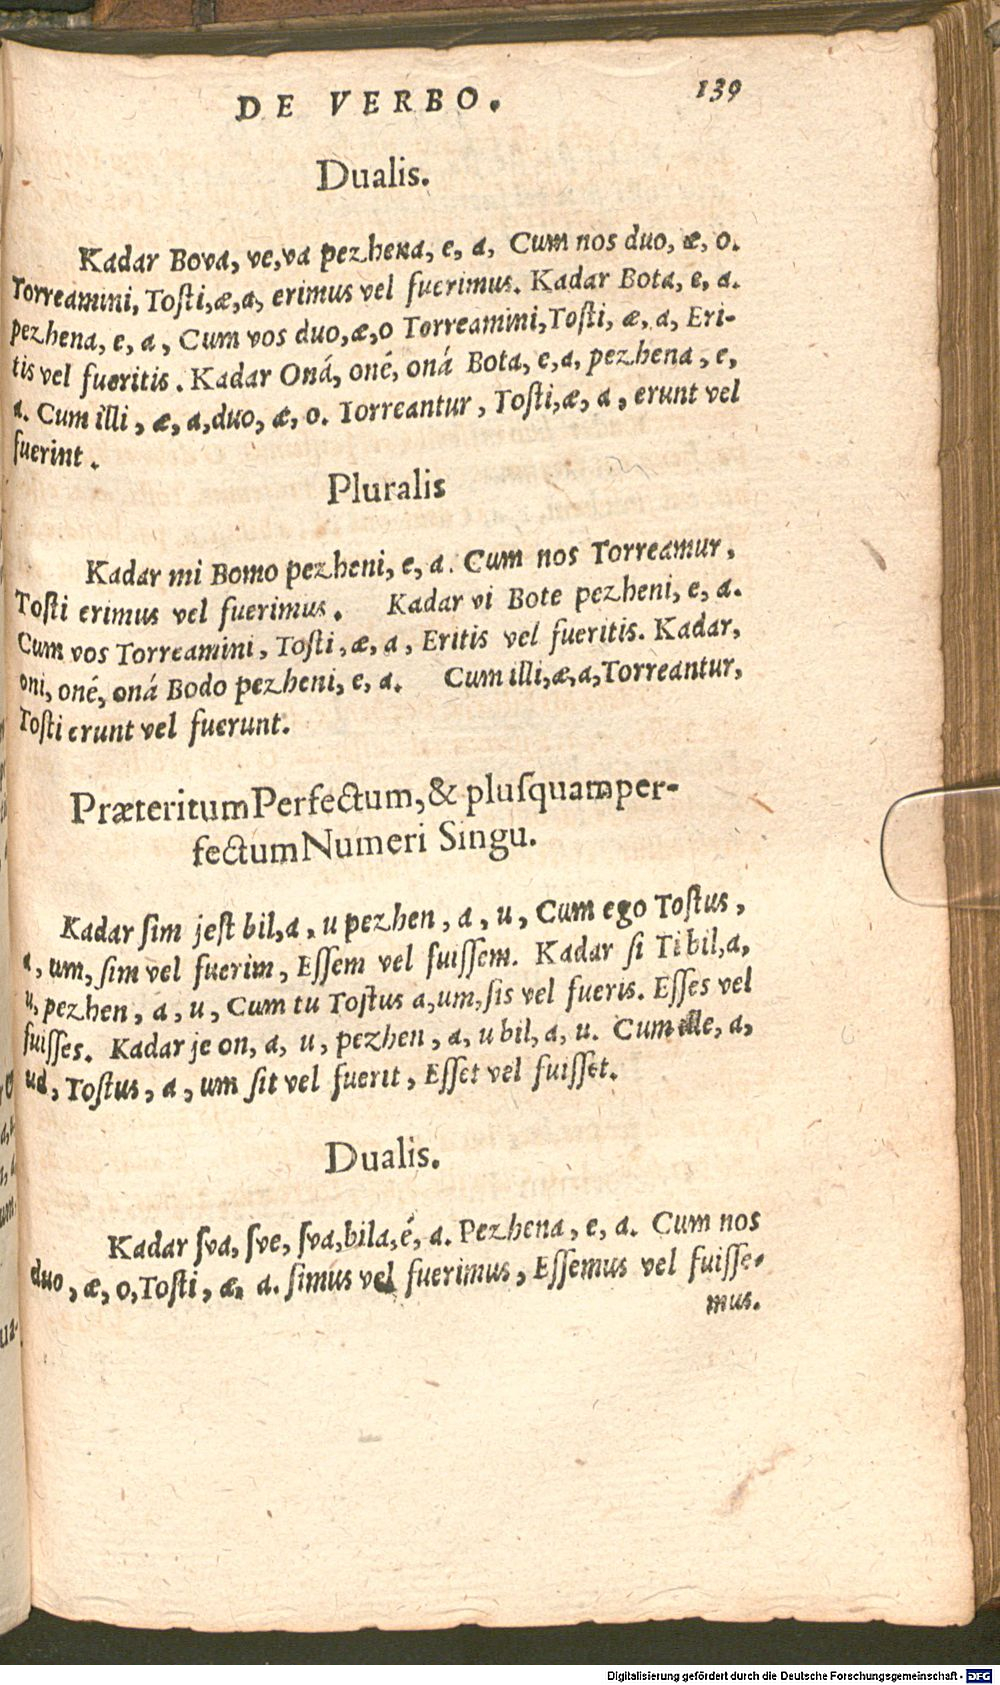 DE VERBO. 139
Dualis.
Kadar Bova, ve, va pezhena, e, a, Cum nos duo, æ, o.
Torreamini, Tosti, æ, a, erimus vel fuerimus. Kadar Bota, e, a.
pezhena, e, a, Cum vos duo, æ, o Torreamini, Tosti, æ, a, Eri-
tis vel fueritis. Kadar Oná, oné, oná Bota, e, a, pezhena, e,
a. Cum illi, æ, a, duo, æ, o. Torreantur, Tosti, æ, a, erunt vel
fuerint.
Pluralis
Kadar mi Bomo pezheni, e, a. Cum nos Torreamur,
Tosti erimus vel fuerimus. Kadar vi Bote pezheni, e, a.
Cum vos Torreamini, Tosti, æ, a, Eritis vel fueritis. Kadar,
oni, oné, oná Bodo pezheni, e, a. Cum illi, æ, a, Torreantur,
Tosti erunt vel fuerunt.
Præteritum Perfectum, & plusquamper-
fectum Numeri Singu.
Kadar sim jest bil, a, u pezhen, a, u, Cum ego Tostus,
a, um, sim vel fuerim, Essem vel fuissem. Kadar si Ti bil, a,
u, pezhen, a, u, Cum tu Tostus a, um, sis vel fueris. Esses vel
fuisses. Kadar je on, a, u, pezhen, a, u bil, a, u. Cum ille, a,
ud, Tostus, a, um sit vel fuerit, Esset vel fuisset.
Dualis.
Kadar sva, sve, sva, bila, é, a. Pezhena, e, a. Cum nos
duo, æ, o, Tosti, æ, a. simus vel fuerimus, Essemus vel fuisse-
mus.
Digitalisierung gefördert durch die Deutsche Forschungsgemeinschaft - DFG